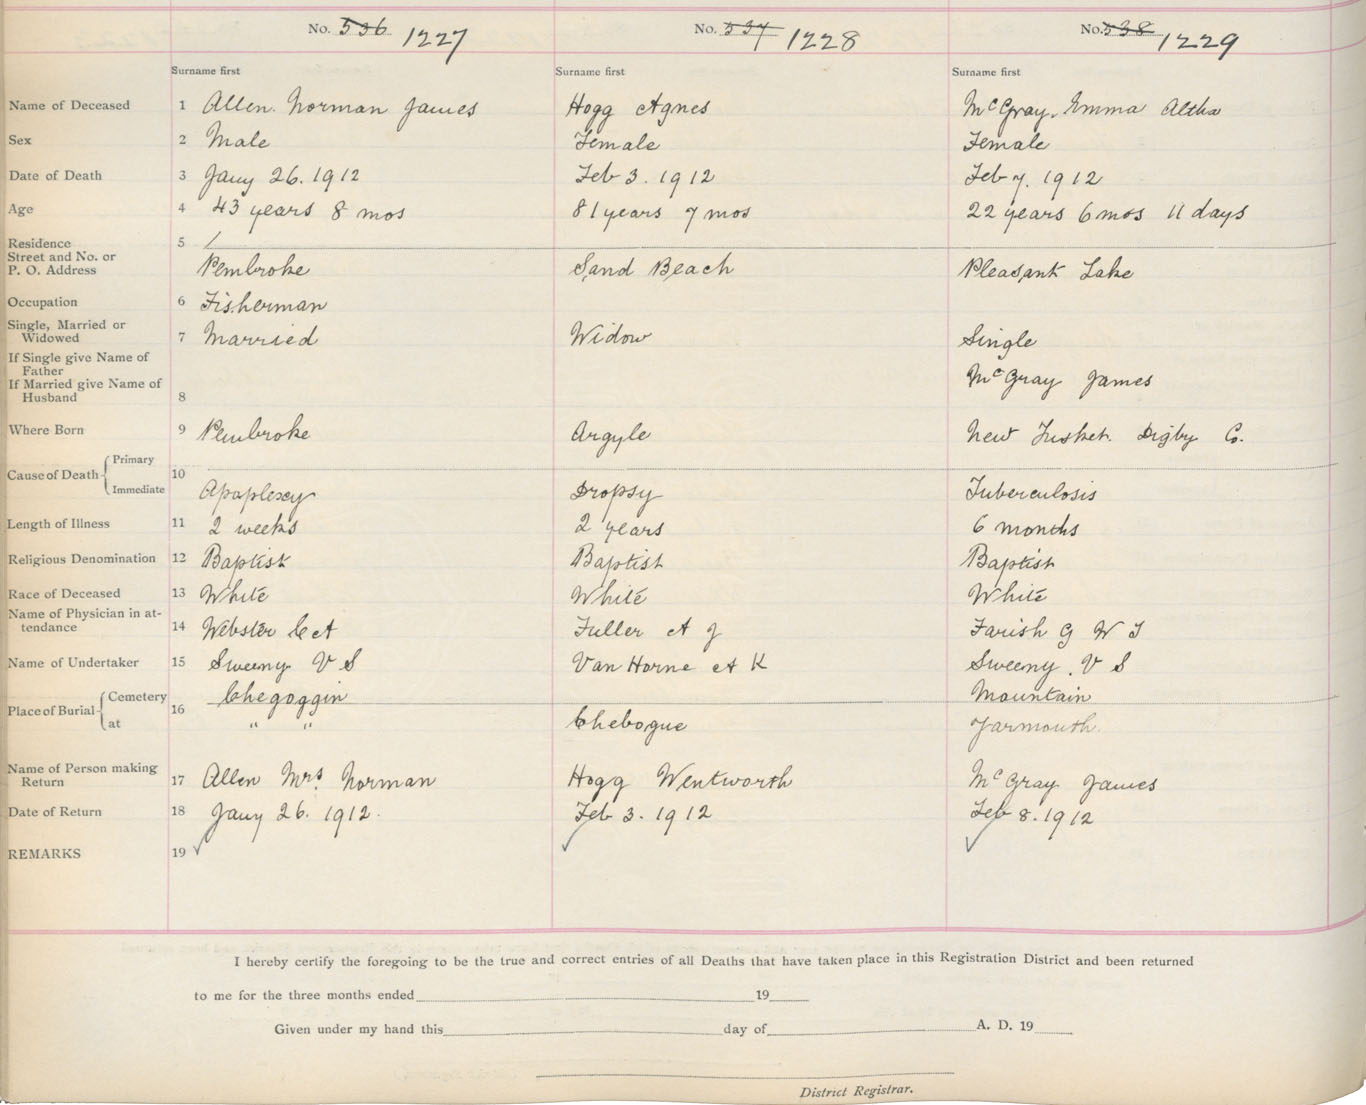 No. 536 1227 No. 537 1228 No. 538 1229
Surname first Surname first Surname first
Name of Deceased 1 Allen. Norman James Hogg Agnes McGray. Emma Altha
Sex 2 Male Female Female
Date of Death 3 Jany 26. 1912 Feb 3. 1912 Feb 7. 1912
Age 4 43 years 8 mos 81 years 7 mos 22 years 6 mos 11 days
Residence 5
Street and No. or
P. O. Address Pembroke Sand Beach Pleasant Lake
Occupation 6 Fisherman
Single, Married or
Widowed 7 Married Widow Single
If Single give Name of
Father
If Married give Name of McGray James
Husband 8
Where Born 9 Pembroke Argyle New Tusket. Digby Co.
Primary
Cause of Death 10
Immediate Apoplexy Dropsy Tuberculosis
Length of Illness 11 2 weeks 2 years 6 months
Religious Denomination 12 Baptist Baptist Baptist
Race of Deceased 13 White White White
Name of Physician in at-
tendance 14 Webster C A Fuller A J Farish G W T
Name of Undertaker 15 Sweeny V S Van Horne A K Sweeny. V S
Cemetery Chegoggin Mountain
Place of Burial 16
at " " Chebogue Yarmouth.
Name of Person making
Return 17 Allen Mrs. Norman Hogg Wentworth McGray James
Date of Return 18 Jany 26. 1912. Feb 3. 1912 Feb 8. 1912
REMARKS 19 ✓ ✓ ✓
I hereby certify the foregoing to be the true and correct entries of all Deaths that have taken place in this Registration District and been returned
to me for the three months ended 19
Given under my hand this day of A. D. 19
District Registrar.